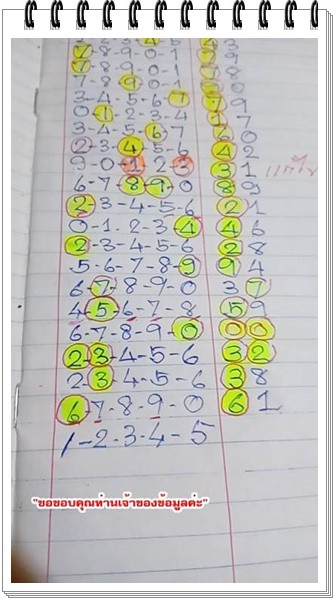 7-8-9-0-1 79
7-8-9-0-1 78
7-8-9-0-1
3-4-5-6-7 79
0-1-2-3-4
3-4-5-6-7
2-3-4-5-6 42
9-0-1-2-3 31
6-7-8-9-0 89
2-3-4-5-6 21
0-1-2-3-4 46
2-3-4-5-6 28
5-6-7-8-9 94
6-7-8-9-0 37
4-5-6-7-8 59
6-7-8-9-0 00
2-3-4-5-6 32
2-3-4-5-6 38
6-7-8-9-0 61
1-2-3-4-5
"ขอขอบคุณท่านเจ้าของข้อมูลค่ะ"